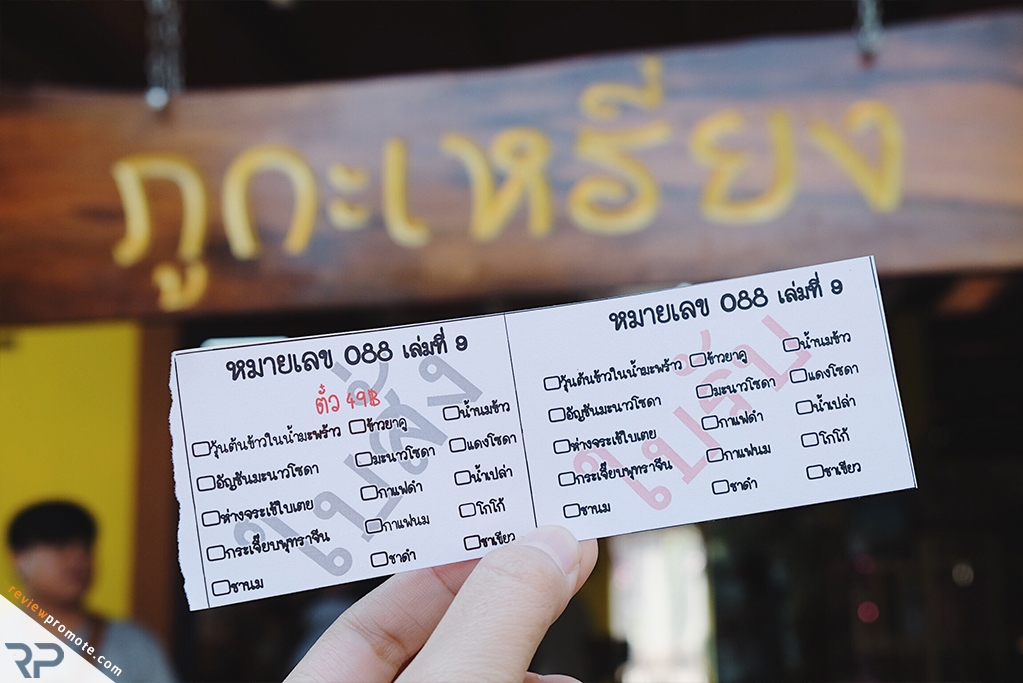 ภูกะเหรี่ยง
หมายเลข 088 เล่มที่ 9
ตั๋ว 49฿
ใบสั่ง
วุ้นต้นข้าวในน้ำมะพร้าว ข้าวยาคู น้ำนมข้าว
อัญชันมะนาวโซดา มะนาวโซดา แดงโซดา
ห่างจระเข้ใบเตย กาแฟดำ น้ำเปล่า
กระเจี๊ยบพุทราจีน กาแฟนม โกโก้
ชานม ชาดำ ชาเขียว
หมายเลข 088 เล่มที่ 9
ใบรับ
วุ้นต้นข้าวในน้ำมะพร้าว ข้าวยาคู น้ำนมข้าว
อัญชันมะนาวโซดา มะนาวโซดา แดงโซดา
ห่างจระเข้ใบเตย กาแฟดำ น้ำเปล่า
กระเจี๊ยบพุทราจีน กาแฟนม โกโก้
ชานม ชาดำ ชาเขียว
reviewpromote.com
RP